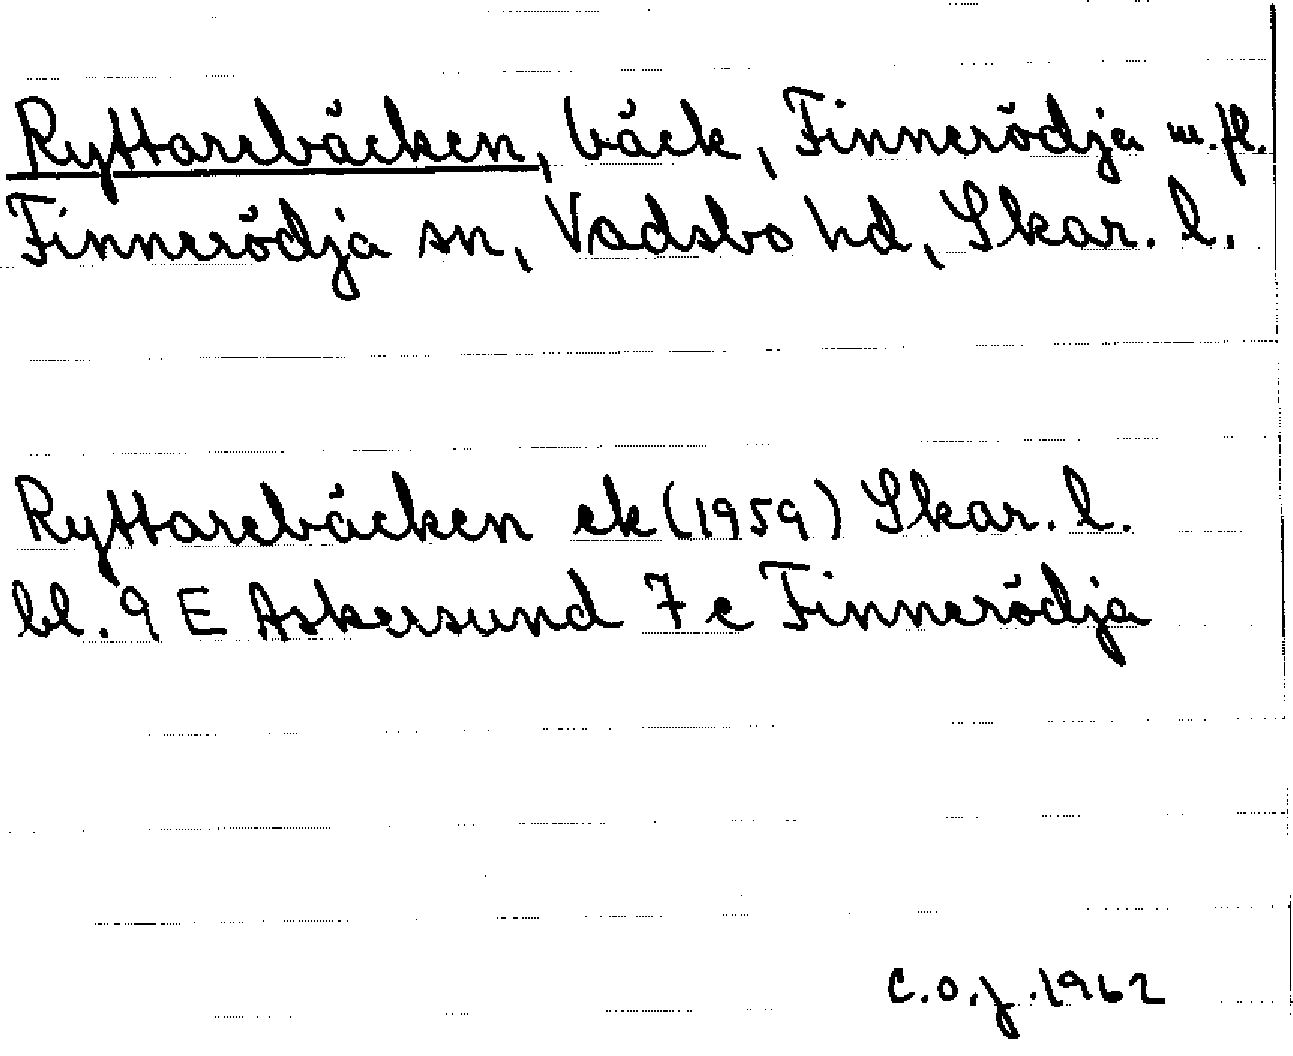 Ryttarebäcken, bäck, Finnerödja m.fl.
Finnerödja sn, Vadsbo hd, Skar. l.
Ryttarebäcken ek (1959) Skar. l.
bl. 9 E Askersund 7 c Finnerödja
C.O.J. 1962